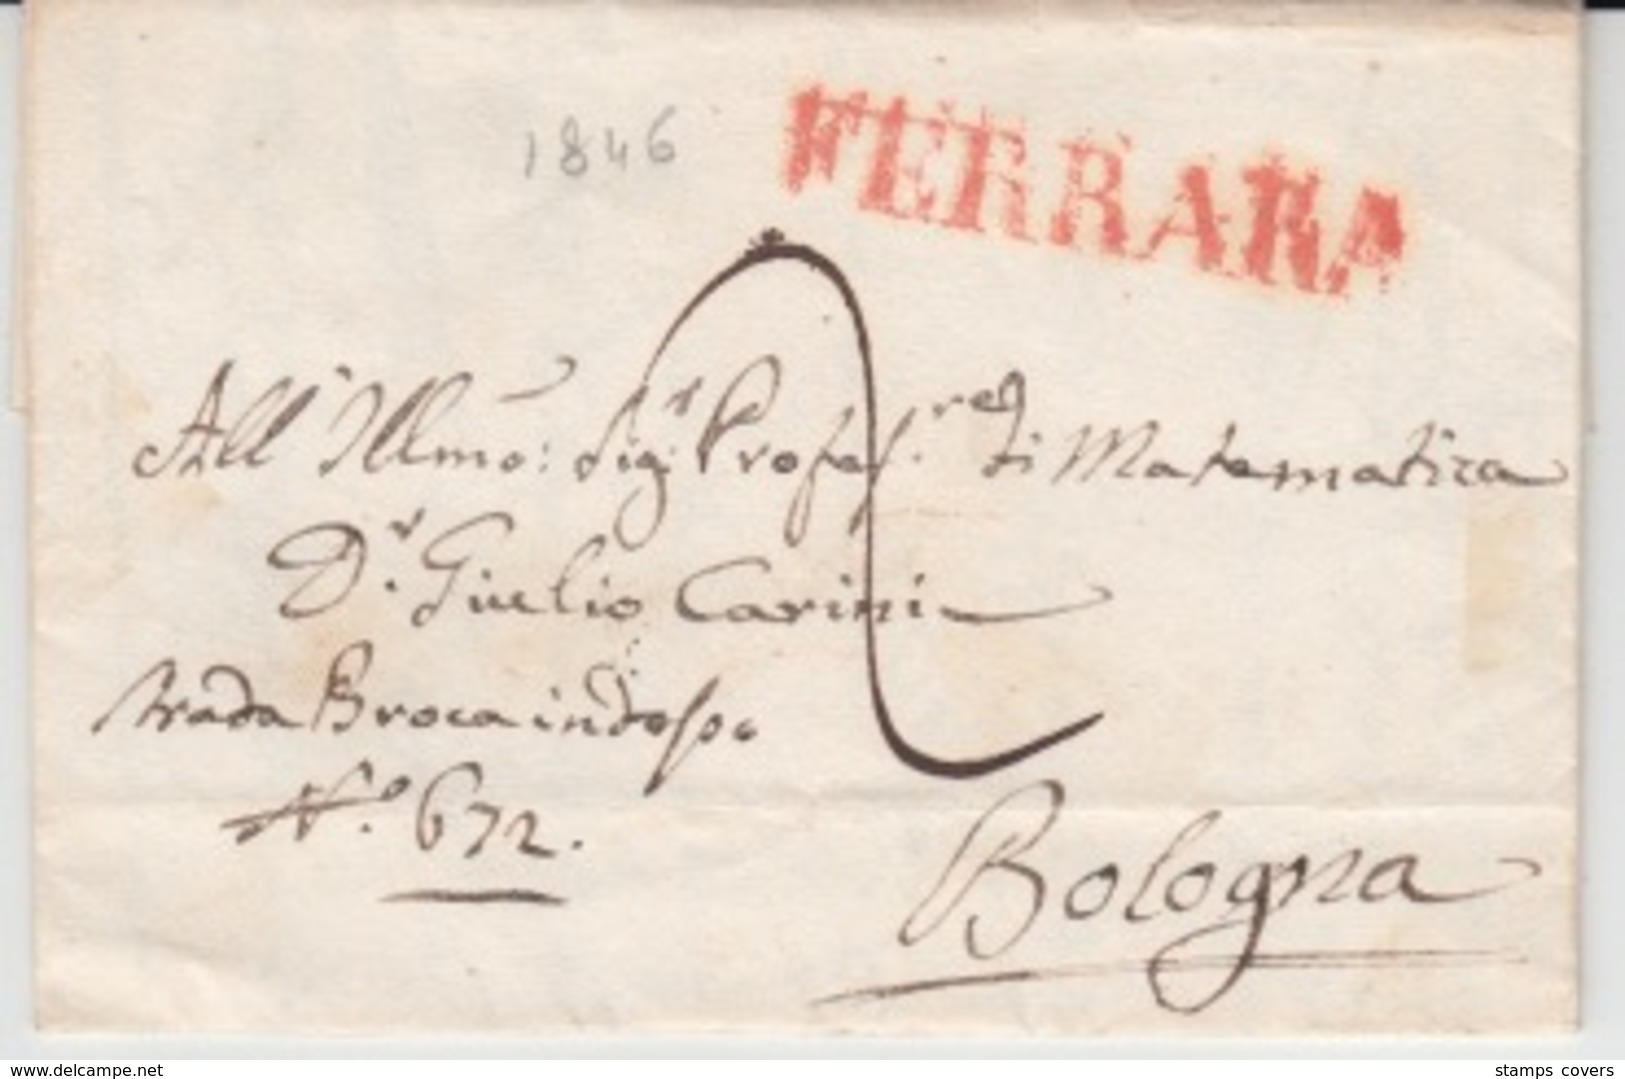 1846
FERRARA
2
All'Illmo: Sig.r Profes.re di Matematica
D.r Giulio Carini
strada Brocaindosso
N.o 672.
Bologna
www.delcampe.net
stamps covers